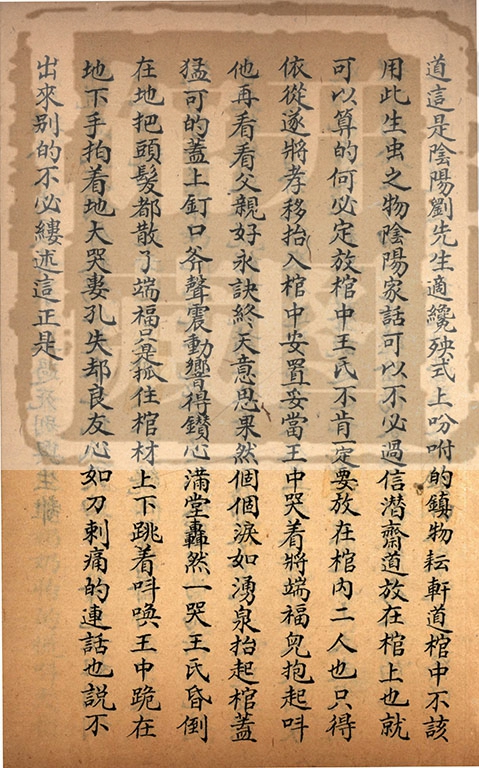 道這是陰陽劉先生適纔殃式上吩咐的鎮物耘軒道棺中不該
用此生虫之物陰陽家話可以不必過信潛齋道放在棺上也就
可以算的何必定放棺中王氏不肯一定要放在棺內二人也只得
依從遂將孝移抬入棺中安置妥當王中哭着將端福兒抱起呌
他再看看父親好永訣終天意思果然個個淚如湧泉抬起棺蓋
猛可的蓋上釘口斧聲震動響得鑽心滿堂轟然一哭王氏昏倒
在地把頭髮都散了端福只是抓住棺材上下跳着呌喚王中跪在
地下手拍着地大哭婁孔失却良友心如刀刺痛的連話也說不
出來别的不必縷述這正是